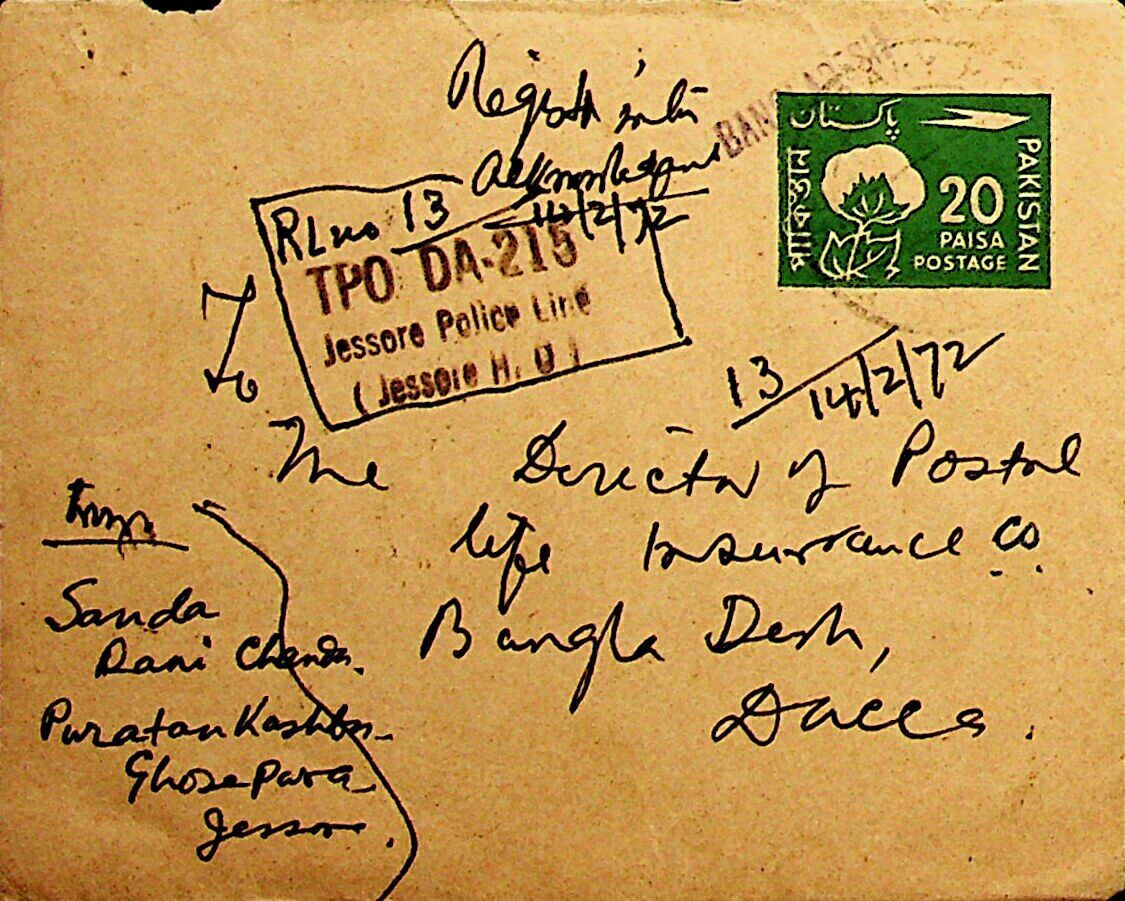 Regist with
Acknowledgment
BANGLADESH
پاکستان
PAKISTAN
20
PAISA
POSTAGE
RL no 13
14/2/72
TPO DA-215
Jessore Police Line
(Jessore H. O)
To
13
14/2/72
The Director of Postal
life Insurance Co.
Bangla Desh,
Dacca.
From
Sanda
Rani Chanda.
Puratan Kashba
Ghosepara
Jessore.